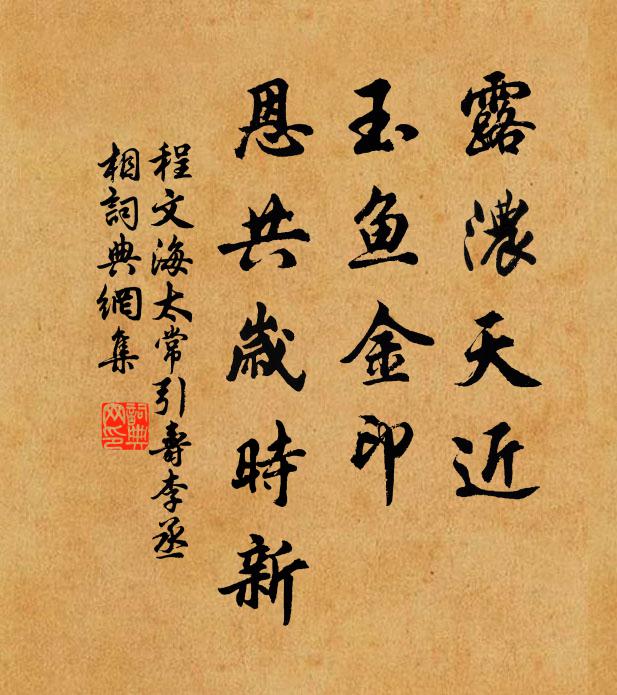 露濃天近
玉魚金印
恩共歲時新
程文海太常引壽李丞
相詞典網集
詞典網印